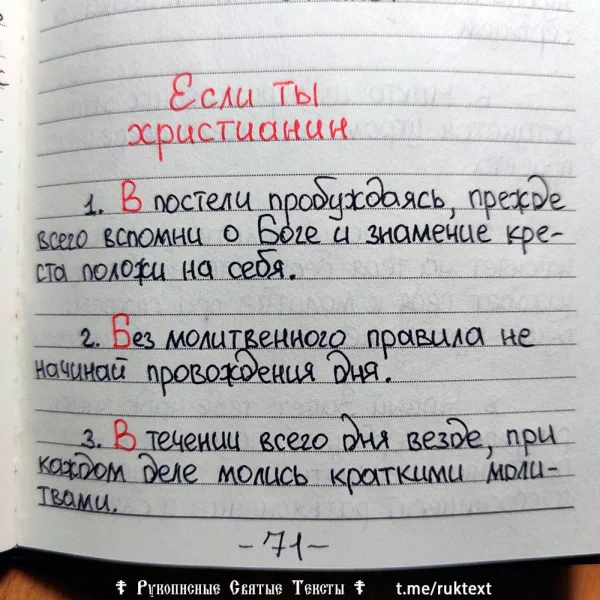 Если ты
христианин
1. В постели пробуждаясь, прежде
всего вспомни о Боге и знамение кре-
ста положи на себя.
2. Без молитвенного правила не
начинай провождения дня.
3. В течении всего дня везде, при
каждом деле молись краткими моли-
твами.
-71-
☦ Рукописные Святые Тексты ☦ t.me/ruktext